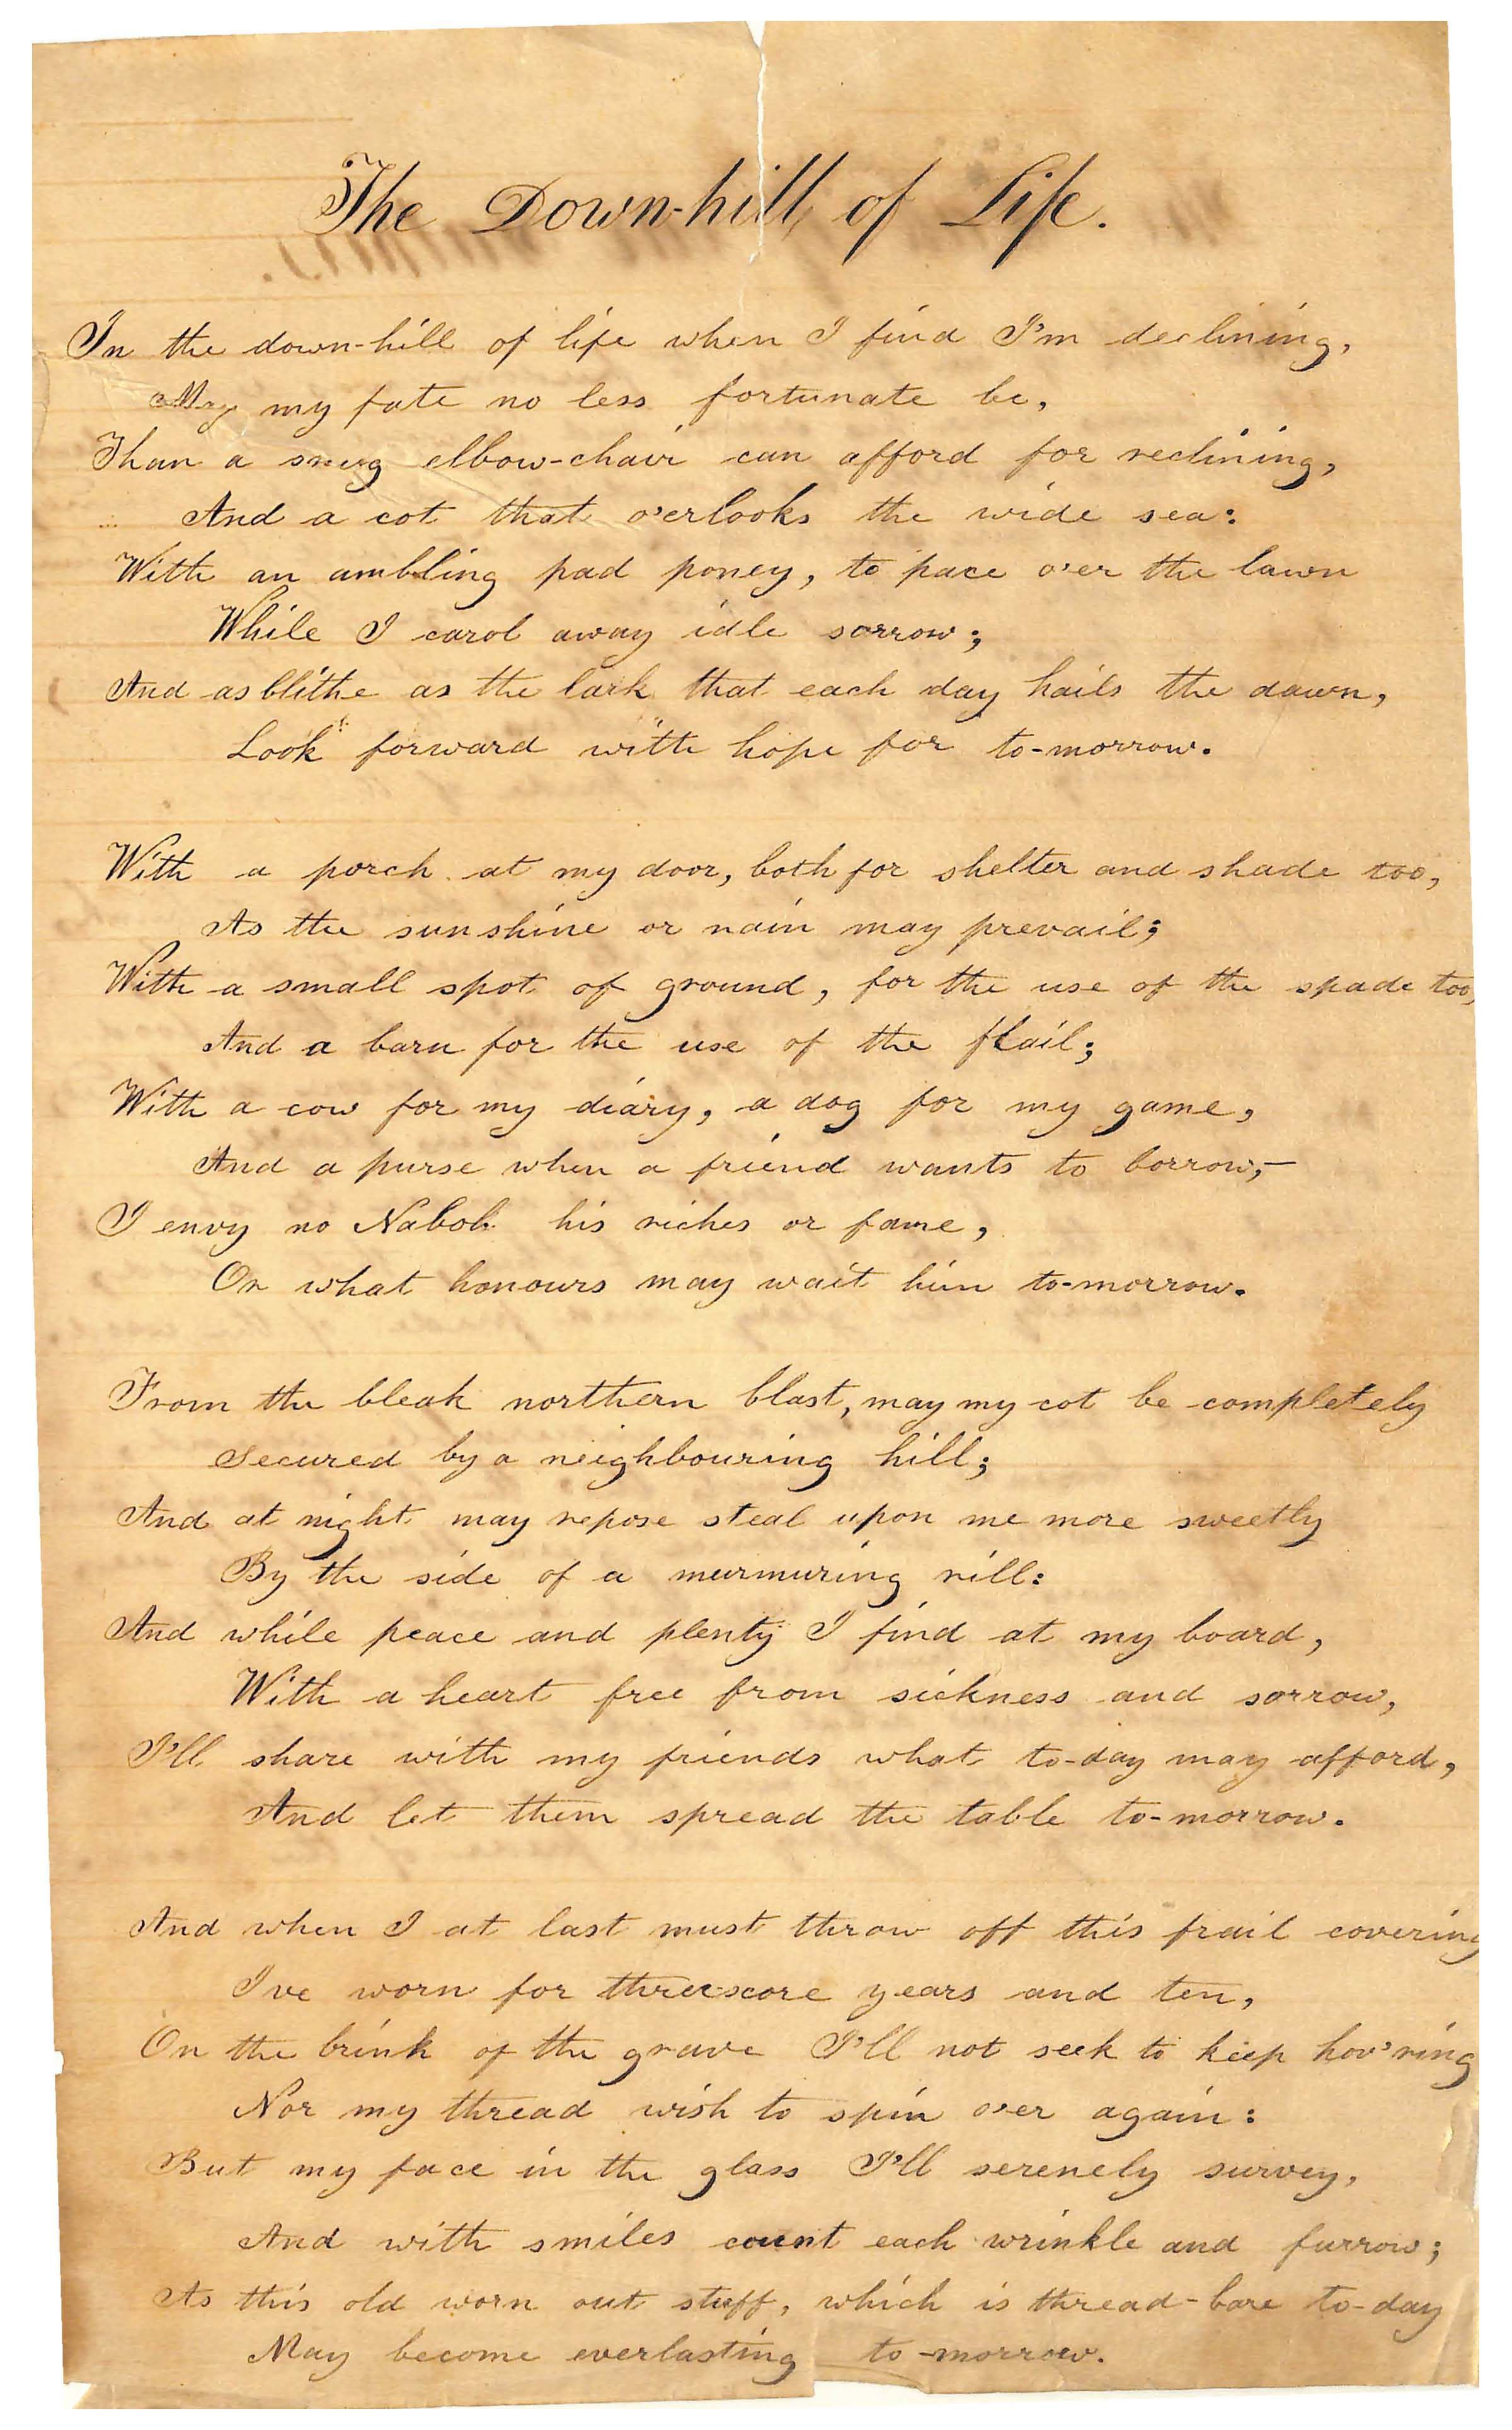 The Down-hill of Life.
In the down-hill of life when I find I'm declining,
May my fate no less fortunate be,
Than a snug elbow-chair can afford for reclining,
And a cot that o'erlooks the wide sea:
With an ambling pad poney, to pace o'er the lawn
While I carol away idle sorrow;
And as blithe as the lark that each day hails the dawn,
Look forward with hope for to-morrow.
With a porch at my door, both for shelter and shade too,
As the sunshine or rain may prevail;
With a small spot of ground, for the use of the spade too,
And a barn for the use of the flail;
With a cow for my diary, a dog for my game,
And a purse when a friend wants to borrow,-
I envy no Nabob his riches or fame,
Or what honours may wait him to-morrow.
From the bleak northern blast, may my cot be completely
Secured by a neighbouring hill;
And at night may repose steal upon me more sweetly
By the side of a murmuring rill:
And while peace and plenty I find at my board,
With a heart free from sickness and sorrow,
I'll share with my friends what to-day may afford,
And let them spread the table to-morrow.
And when I at last must throw off this frail covering
I've worn for threescore years and ten,
On the brink of the grave I'll not seek to keep hov'ring
Nor my thread wish to spin o'er again:
But my face in the glass I'll serenely survey,
And with smiles count each wrinkle and furrow;
As this old worn out stuff, which is thread-bare to-day
May become everlasting to-morrow.